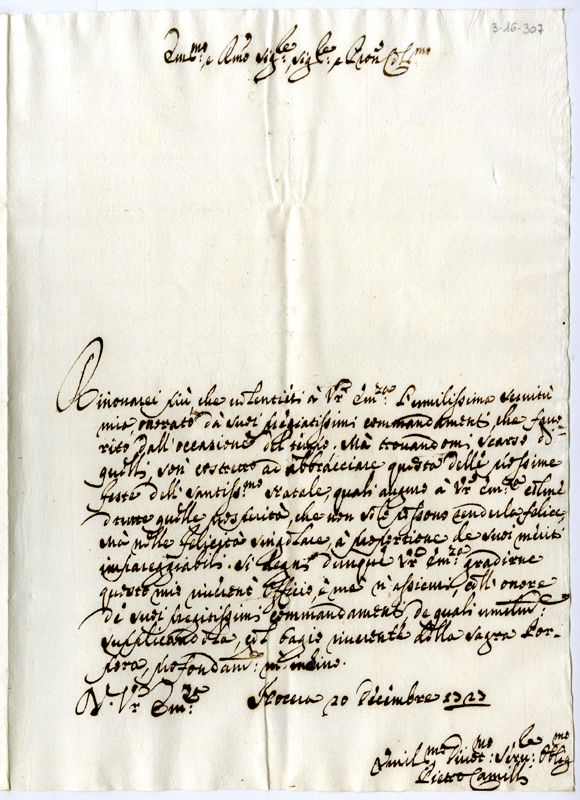 3-16-307
Em.mo, e Rmo Sig.re, Sig.re, e Pron Col.mo
Rinovarei più che volentieri à Vrã Em.za l'umilissima servitù
mia, onorato da suoi pregiatissimi commandamenti, che favo-
rito dall'occasione del tempo. Mà trovandomi scarso di
quelli son costretto ad abbracciare questa delle prossime
feste dell'Santiss.mo Natale, quali auguro à Vrã Em.za colme
di tutte quelle prosperità, che non solo possono renderla felice,
mà nelle felicità singolare, à proportione de suoi meriti
impareggiabili. Si degni dunque Vrã Em.za gradirne
questo mio riverente Officio, è mè n'assicuri, coll'onore
de suoi pregiatissimi commandamenti, de quali umilm.:
supplicandola, col bagio riverente della Sagra Por-
pora, profondam.: m'inchino.
D. Vrã Em.za Nocera 20 Decembre 1727
Umil.mo Divot.mo: Serv.re: Oblig.mo
Pietro Camilli